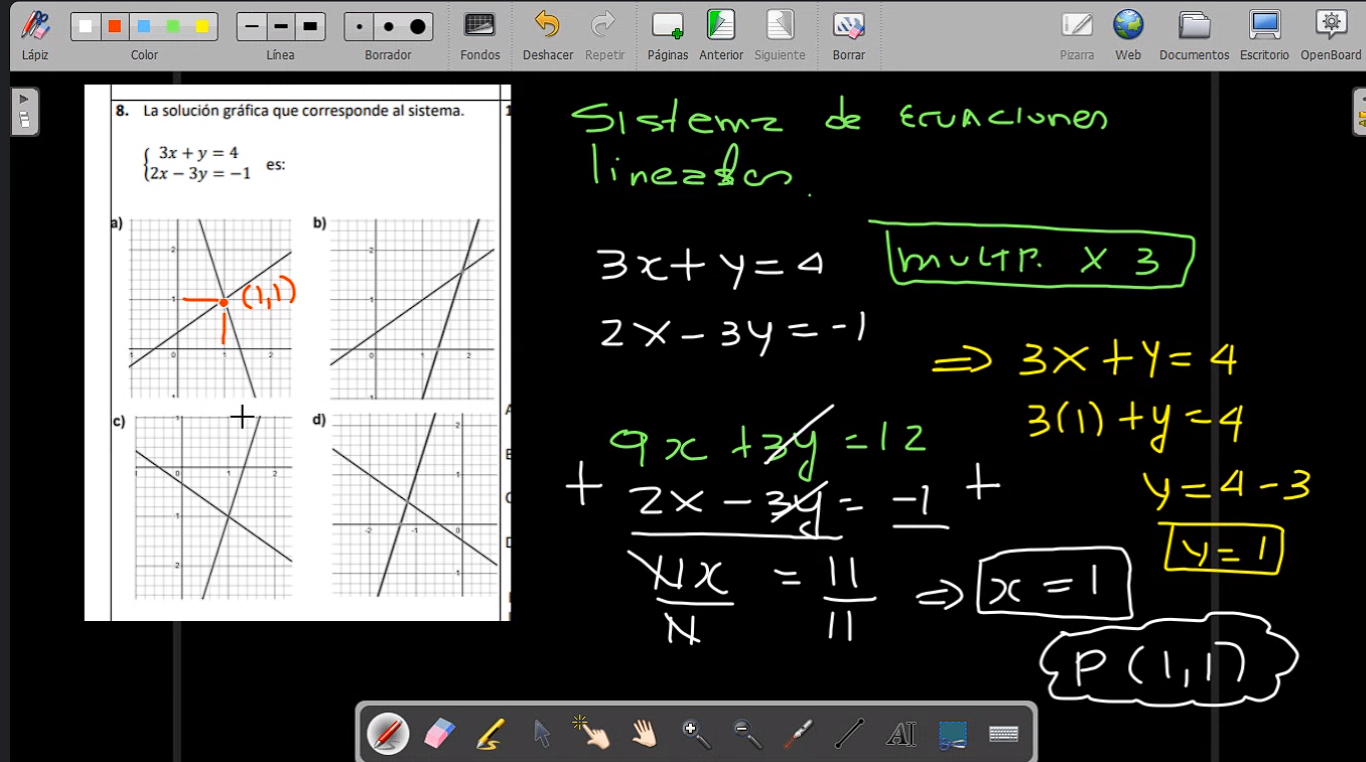 Lápiz Color Línea Borrador Fondos Deshacer Repetir Páginas Anterior Siguiente Borrar Pizarra Web Documentos Escritorio OpenBoard
8. La solución gráfica que corresponde al sistema.
3x + y = 4
2x − 3y = −1 es:
a)
2
1
(1,1)
1 0 1 2
b)
2
1
0 2
c)
1
0 1 2
1
2
d)
2
1
-2 -1 0
1
Sistema de Ecuaciones
lineales.
3x + y = 4
2x − 3y = −1
multp. X 3
9x + 3y = 12
+ 2x − 3y = −1 +
11x = 11
11 11
⇒ x = 1
⇒ 3x + y = 4
3(1) + y = 4
y = 4 − 3
y = 1
P (1,1)
AI